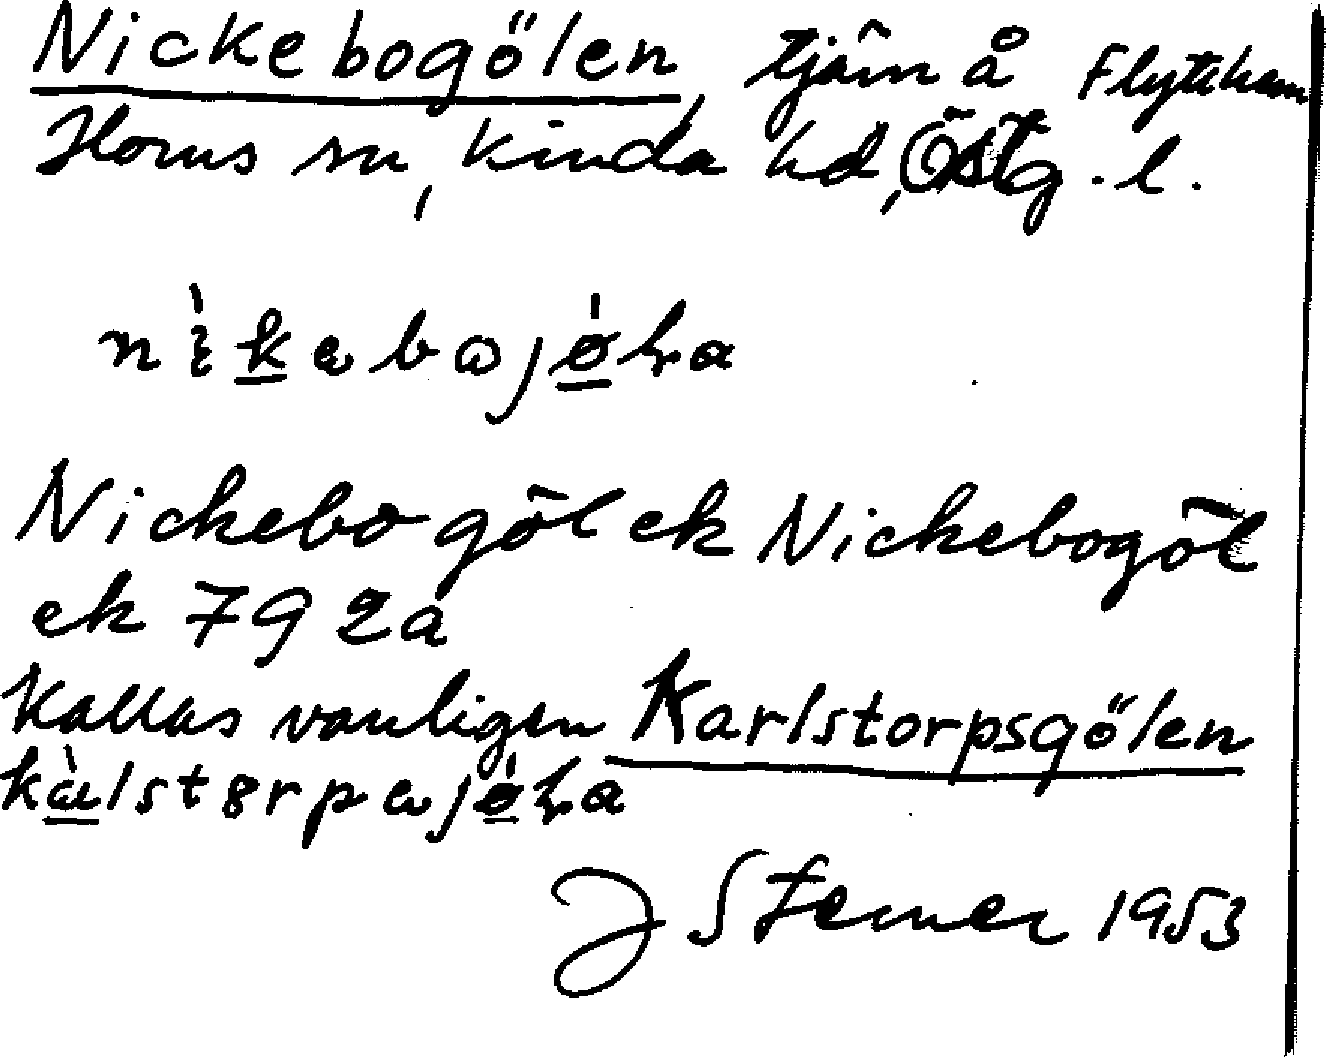 Nickebogölen, tjärn å Flytthem
Horns sn, Kinda hd, Östg. l.
Nickebo göl ek Nickebogöl
ek 79 2a
Kallas vanligen Karlstorpsgölen
J Stemer 1953